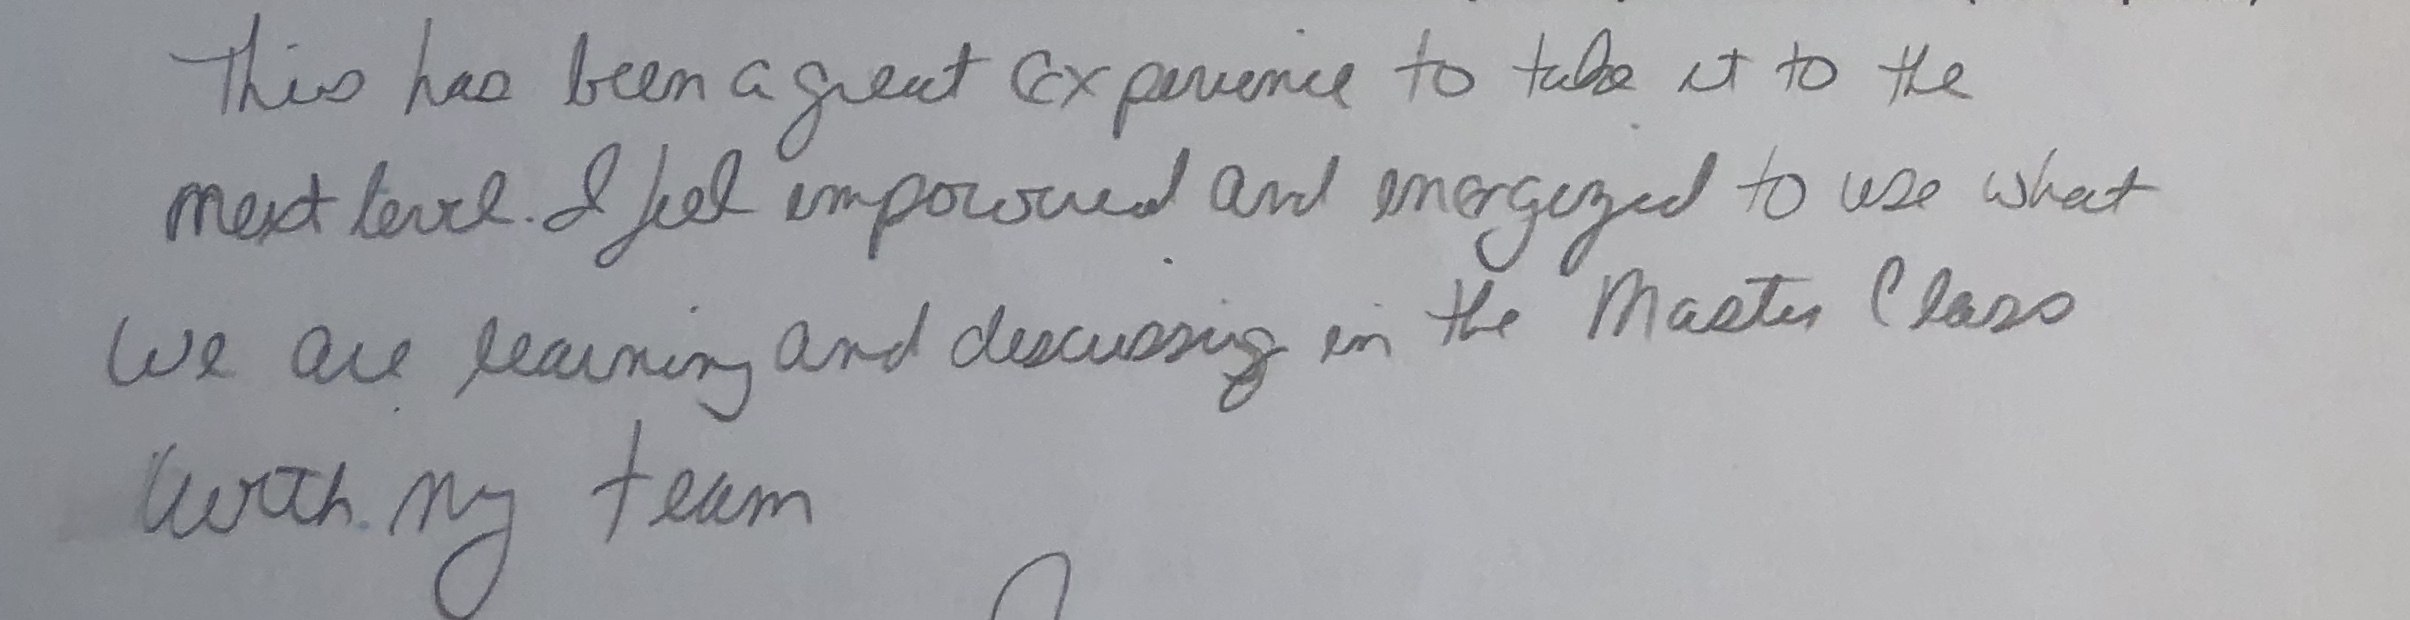 This has been a great experience to take it to the
next level. I feel empowered and energized to use what
we are learning and discussing in the Master Class
with my team